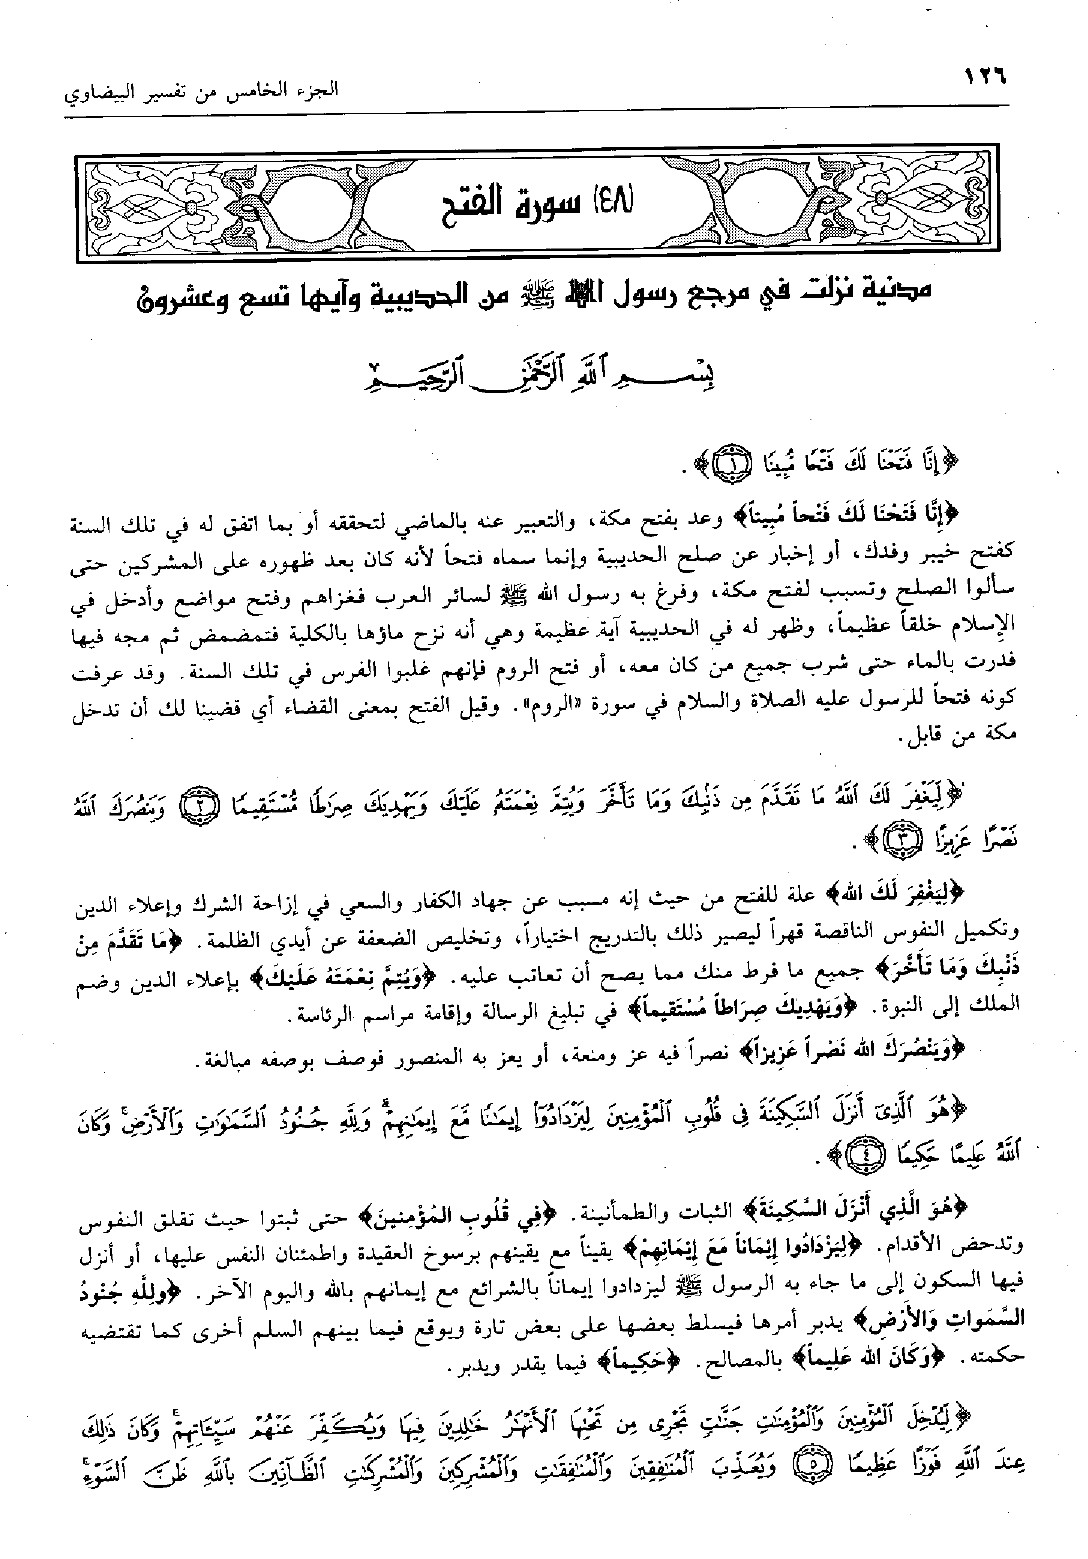 ١٢٦
الجزء الخامس من تفسير البيضاوي
(٤٨) سورة الفتح
مدنية نزلت في مرجع رسول الله ﷺ من الحديبية وآيها تسع وعشرون
بِسْمِ ٱللَّهِ ٱلرَّحْمَٰنِ ٱلرَّحِيمِ
﴿إِنَّا فَتَحْنَا لَكَ فَتْحًا مُّبِينًا ١﴾.
﴿إِنَّا فَتَحْنَا لَكَ فَتْحاً مُبِيناً﴾ وعد بفتح مكة، والتعبير عنه بالماضي لتحققه أو بما اتفق له في تلك السنة
كفتح خيبر وفدك، أو إخبار عن صلح الحديبية وإنما سماه فتحاً لأنه كان بعد ظهوره على المشركين حتى
سألوا الصلح وتسبب لفتح مكة، وفرغ به رسول الله ﷺ لسائر العرب فغزاهم وفتح مواضع وأدخل في
الإسلام خلقاً عظيماً، وظهر له في الحديبية آية عظيمة وهي أنه نزح ماؤها بالكلية فتمضمض ثم مجه فيها
فدرت بالماء حتى شرب جميع من كان معه، أو فتح الروم فإنهم غلبوا الفرس في تلك السنة. وقد عرفت
كونه فتحاً للرسول عليه الصلاة والسلام في سورة «الروم». وقيل الفتح بمعنى القضاء أي قضينا لك أن تدخل
مكة من قابل.
﴿لِّيَغْفِرَ لَكَ ٱللَّهُ مَا تَقَدَّمَ مِن ذَنۢبِكَ وَمَا تَأَخَّرَ وَيُتِمَّ نِعْمَتَهُۥ عَلَيْكَ وَيَهْدِيَكَ صِرَٰطًا مُّسْتَقِيمًا ٢ وَيَنصُرَكَ ٱللَّهُ
نَصْرًا عَزِيزًا ٣﴾.
﴿لِيَغْفِرَ لَكَ الله﴾ علة للفتح من حيث إنه مسبب عن جهاد الكفار والسعي في إزاحة الشرك وإعلاء الدين
وتكميل النفوس الناقصة قهراً ليصير ذلك بالتدريج اختياراً، وتخليص الضعفة عن أيدي الظلمة. ﴿مَا تَقَدَّمَ مِنْ
ذَنْبِكَ وَمَا تَأَخَّرَ﴾ جميع ما فرط منك مما يصح أن تعاتب عليه. ﴿وَيُتِمَّ نِعْمَتَهُ عَلَيْكَ﴾ بإعلاء الدين وضم
الملك إلى النبوة. ﴿وَيَهْدِيكَ صِرَاطاً مُسْتَقِيماً﴾ في تبليغ الرسالة وإقامة مراسم الرئاسة.
﴿وَيَنْصُرَكَ الله نَصْراً عَزِيزاً﴾ نصراً فيه عز ومنعة، أو يعز به المنصور فوصف بوصفه مبالغة.
﴿هُوَ ٱلَّذِىٓ أَنزَلَ ٱلسَّكِينَةَ فِى قُلُوبِ ٱلْمُؤْمِنِينَ لِيَزْدَادُوٓا۟ إِيمَٰنًا مَّعَ إِيمَٰنِهِمْ ۗ وَلِلَّهِ جُنُودُ ٱلسَّمَٰوَٰتِ وَٱلْأَرْضِ ۚ وَكَانَ
ٱللَّهُ عَلِيمًا حَكِيمًا ٤﴾.
﴿هُوَ الَّذِي أَنْزَلَ السَّكِينَةَ﴾ الثبات والطمأنينة. ﴿فِي قُلُوبِ المُؤْمِنِينَ﴾ حتى ثبتوا حيث تقلق النفوس
وتدحض الأقدام. ﴿لِيَزْدَادُوا إِيْمَاناً مَعَ إِيْمَانِهِمْ﴾ يقيناً مع يقينهم برسوخ العقيدة واطمئنان النفس عليها، أو أنزل
فيها السكون إلى ما جاء به الرسول ﷺ ليزدادوا إيماناً بالشرائع مع إيمانهم بالله واليوم الآخر. ﴿ولِلَّهِ جُنُودُ
السَّمَواتِ وَالأَرْضِ﴾ يدبر أمرها فيسلط بعضها على بعض تارة ويوقع فيما بينهم السلم أخرى كما تقتضيه
حكمته. ﴿وَكَانَ الله عَلِيماً﴾ بالمصالح. ﴿حَكِيماً﴾ فيما يقدر ويدبر.
﴿لِّيُدْخِلَ ٱلْمُؤْمِنِينَ وَٱلْمُؤْمِنَٰتِ جَنَّٰتٍ تَجْرِى مِن تَحْتِهَا ٱلْأَنْهَٰرُ خَٰلِدِينَ فِيهَا وَيُكَفِّرَ عَنْهُمْ سَيِّـَٔاتِهِمْ ۚ وَكَانَ ذَٰلِكَ
عِندَ ٱللَّهِ فَوْزًا عَظِيمًا ٥ وَيُعَذِّبَ ٱلْمُنَٰفِقِينَ وَٱلْمُنَٰفِقَٰتِ وَٱلْمُشْرِكِينَ وَٱلْمُشْرِكَٰتِ ٱلظَّآنِّينَ بِٱللَّهِ ظَنَّ ٱلسَّوْءِ ۚ